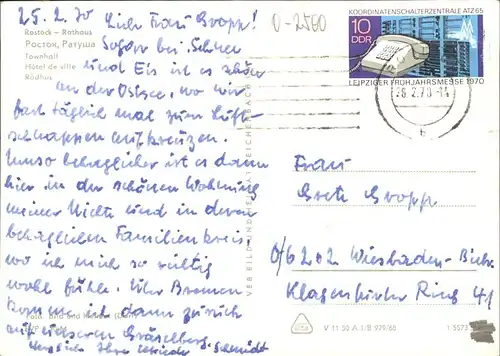 25.2.70 Liebe Frau Gropp!
0-2560
Rostock - Rathaus
Росток, Ратуша
Townhall
Hôtel de ville
Rådhus
Sogar bei Schnee
und Eis ist es schön
an der Ostsee, wo wir
fast täglich mal zum Luft-
schnappen aufkreuzen.
Umso behaglicher ist es dann
hier in der schönen Wohnung
meiner Nichte und in deren
behaglichen Familienkreis
wo ich mich so richtig
wohl fühle. Über Bremen
komme ich dann zurück
auf unseren Gräselberg.
Herzlich Ihre Schmidt
VEB BILD UND HEIMAT REICHENBACH
KOORDINATENSCHALTERZENTRALE ATZ 65
10
DDR
LEIPZIGER FRÜHJAHRSMESSE 1970
26.2.70
Frau
Grete Gropp
6202 Wiesbaden-Biebr.
Klagenfurter Ring
V 11 50 A 1/B 979/68
1 5573